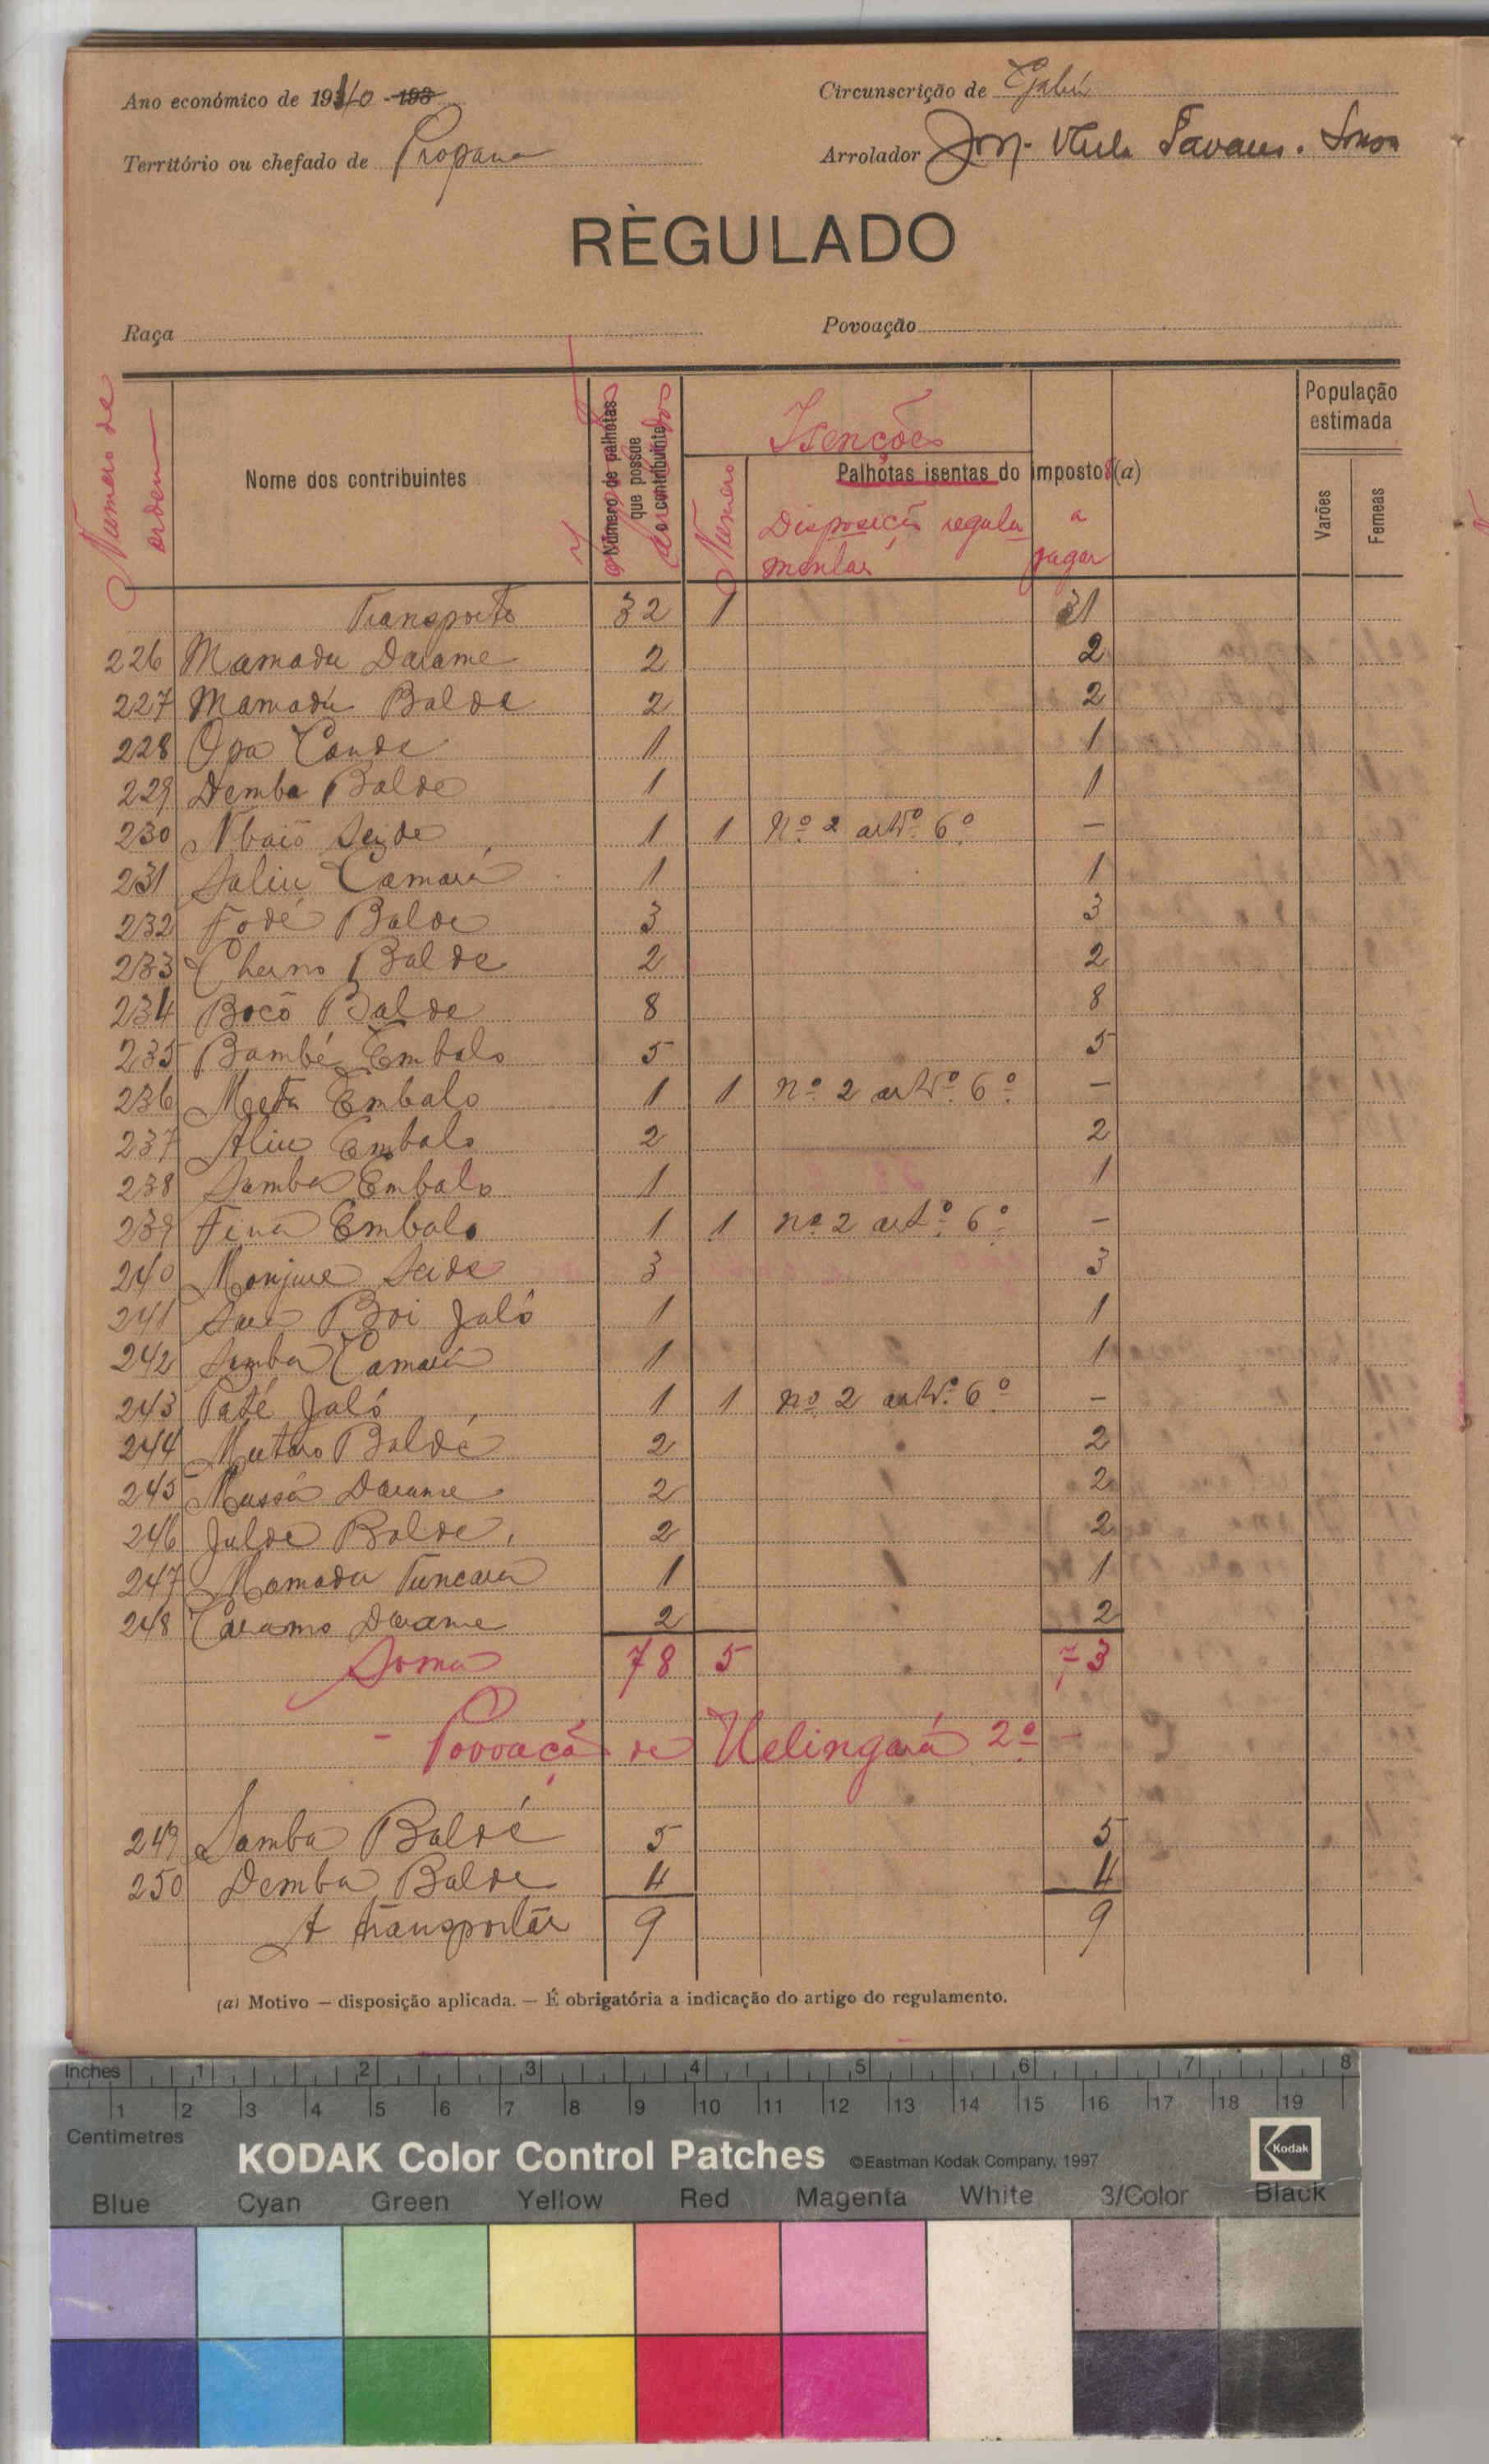 Ano económico de 1940 - 193
Circunscrição de Gabú
Território ou chefado de Propana
Arrolador Tavares. Sousa
RÈGULADO
Raça
Povoação
Numero de ordem
Nome dos contribuintes
Número de palhotas que possue o contribuinte
Isenções
Palhotas isentas do imposto (a)
Numero
Disposição regulamentar
a pagar
População estimada
Varões
Femeas
Transporte 32 1 31
226 Mamadu Darame 2 2
227 Mamadú Balde 2 2
228 Opa Cande 1 1
229 Demba Balde 1 1
230 Seide 1 1 Nº 2 artº 6º —
231 Saliu Camará 1 1
232 Fodé Balde 3 3
233 Cherno Balde 2 2
234 Bocó Balde 8 8
235 Bambé Embalo 5 5
236 Meta Embalo 1 1 nº 2 artº 6º —
237 Aliu Embalo 2 2
238 Samba Embalo 1 1
239 Fina Embalo 1 1 nº 2 artº 6º —
240 Monjure Seide 3 3
241 Boi Jaló 1 1
242 Samba Camará 1 1
243 Paté Jaló 1 1 nº 2 artº 6º -
244 Mutaro Baldé 2 2
245 Mussá Darame 2 2
246 Julde Balde 2 2
247 Mamadu Tuncara 1 1
248 Caramo Darame 2 2
Soma 78 5 73
- Povoação de Velingará 2º -
249 Samba Baldé 5 5
250 Demba Balde 4 4
A transportar 9 9
(a) Motivo — disposição aplicada. — É obrigatória a indicação do artigo do regulamento.
Inches 1 2 3 4 5 6 7 8
1 2 3 4 5 6 7 8 9 10 11 12 13 14 15 16 17 18 19
Centimetres
KODAK Color Control Patches ©Eastman Kodak Company, 1997 Kodak
Blue Cyan Green Yellow Red Magenta White 3/Color Black